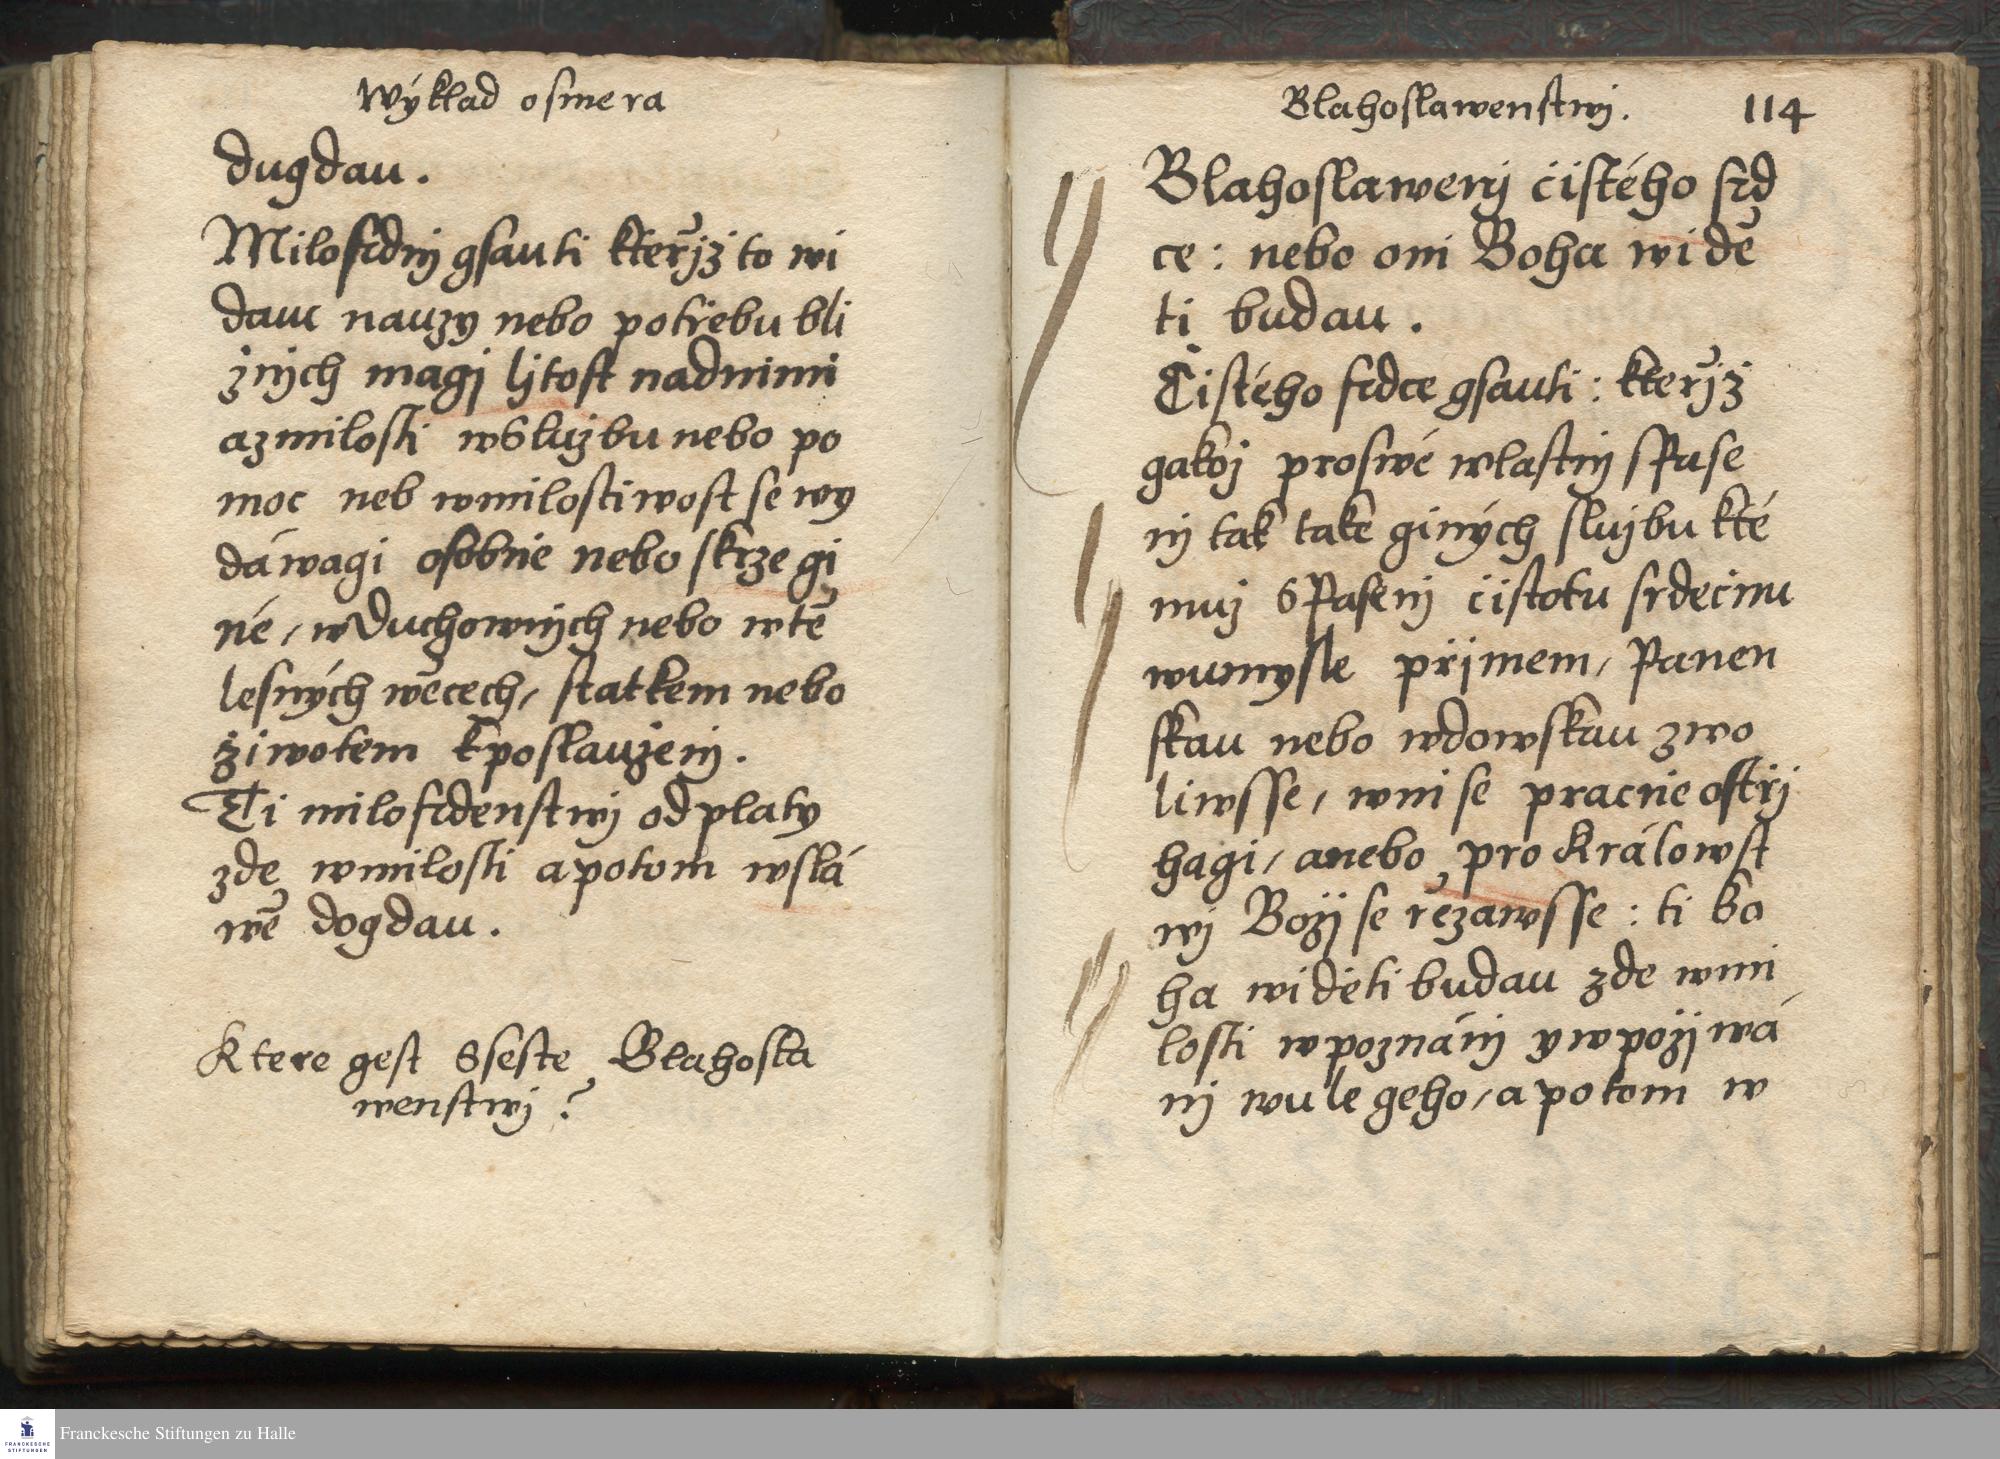 Wýklad osmera
dugdau.
Milosrdnj gsauti kteřjž to wi
dauc nauzy nebo potřebu bli
žnjch magj ljtost nadnimi
azmilosti wSlužbu nebo po
moc neb wmilostiwost se wy
dáwagi osobnie nebo skrze gi
né, wDuchownjch nebo wtě
lesných wěcech, statkem nebo
žiwotem kposlauženj.
Ti milosrdenstwj odplaty
zde wmilosti apotom wslá
wě dogdau.
Ktere gest Sseste Blahosla
wenstwj?
Blahoslawenstwj. 114
Blahoslawenj čistého srd
ce: nebo oni Boha widě
ti budau.
Čistého srdce gsauti: kteřjž
gakoj proswé wlastnj sPase
nj tak také giných službu kté
muž SPasenj čistotu srdečnu
wumysle přjmem, Panen
skau nebo wdowskau zwo
liwsse, wni se pracnie ostřj
hagi, anebo pro Králowst
wj Božj se řezawsse: ti bo
ha widěti budau zde wmi
losti wpoznánj ywpožjwá
nj wule geho, apotom w
Franckesche Stiftungen zu Halle
FRANCKESCHE
STIFTUNGEN